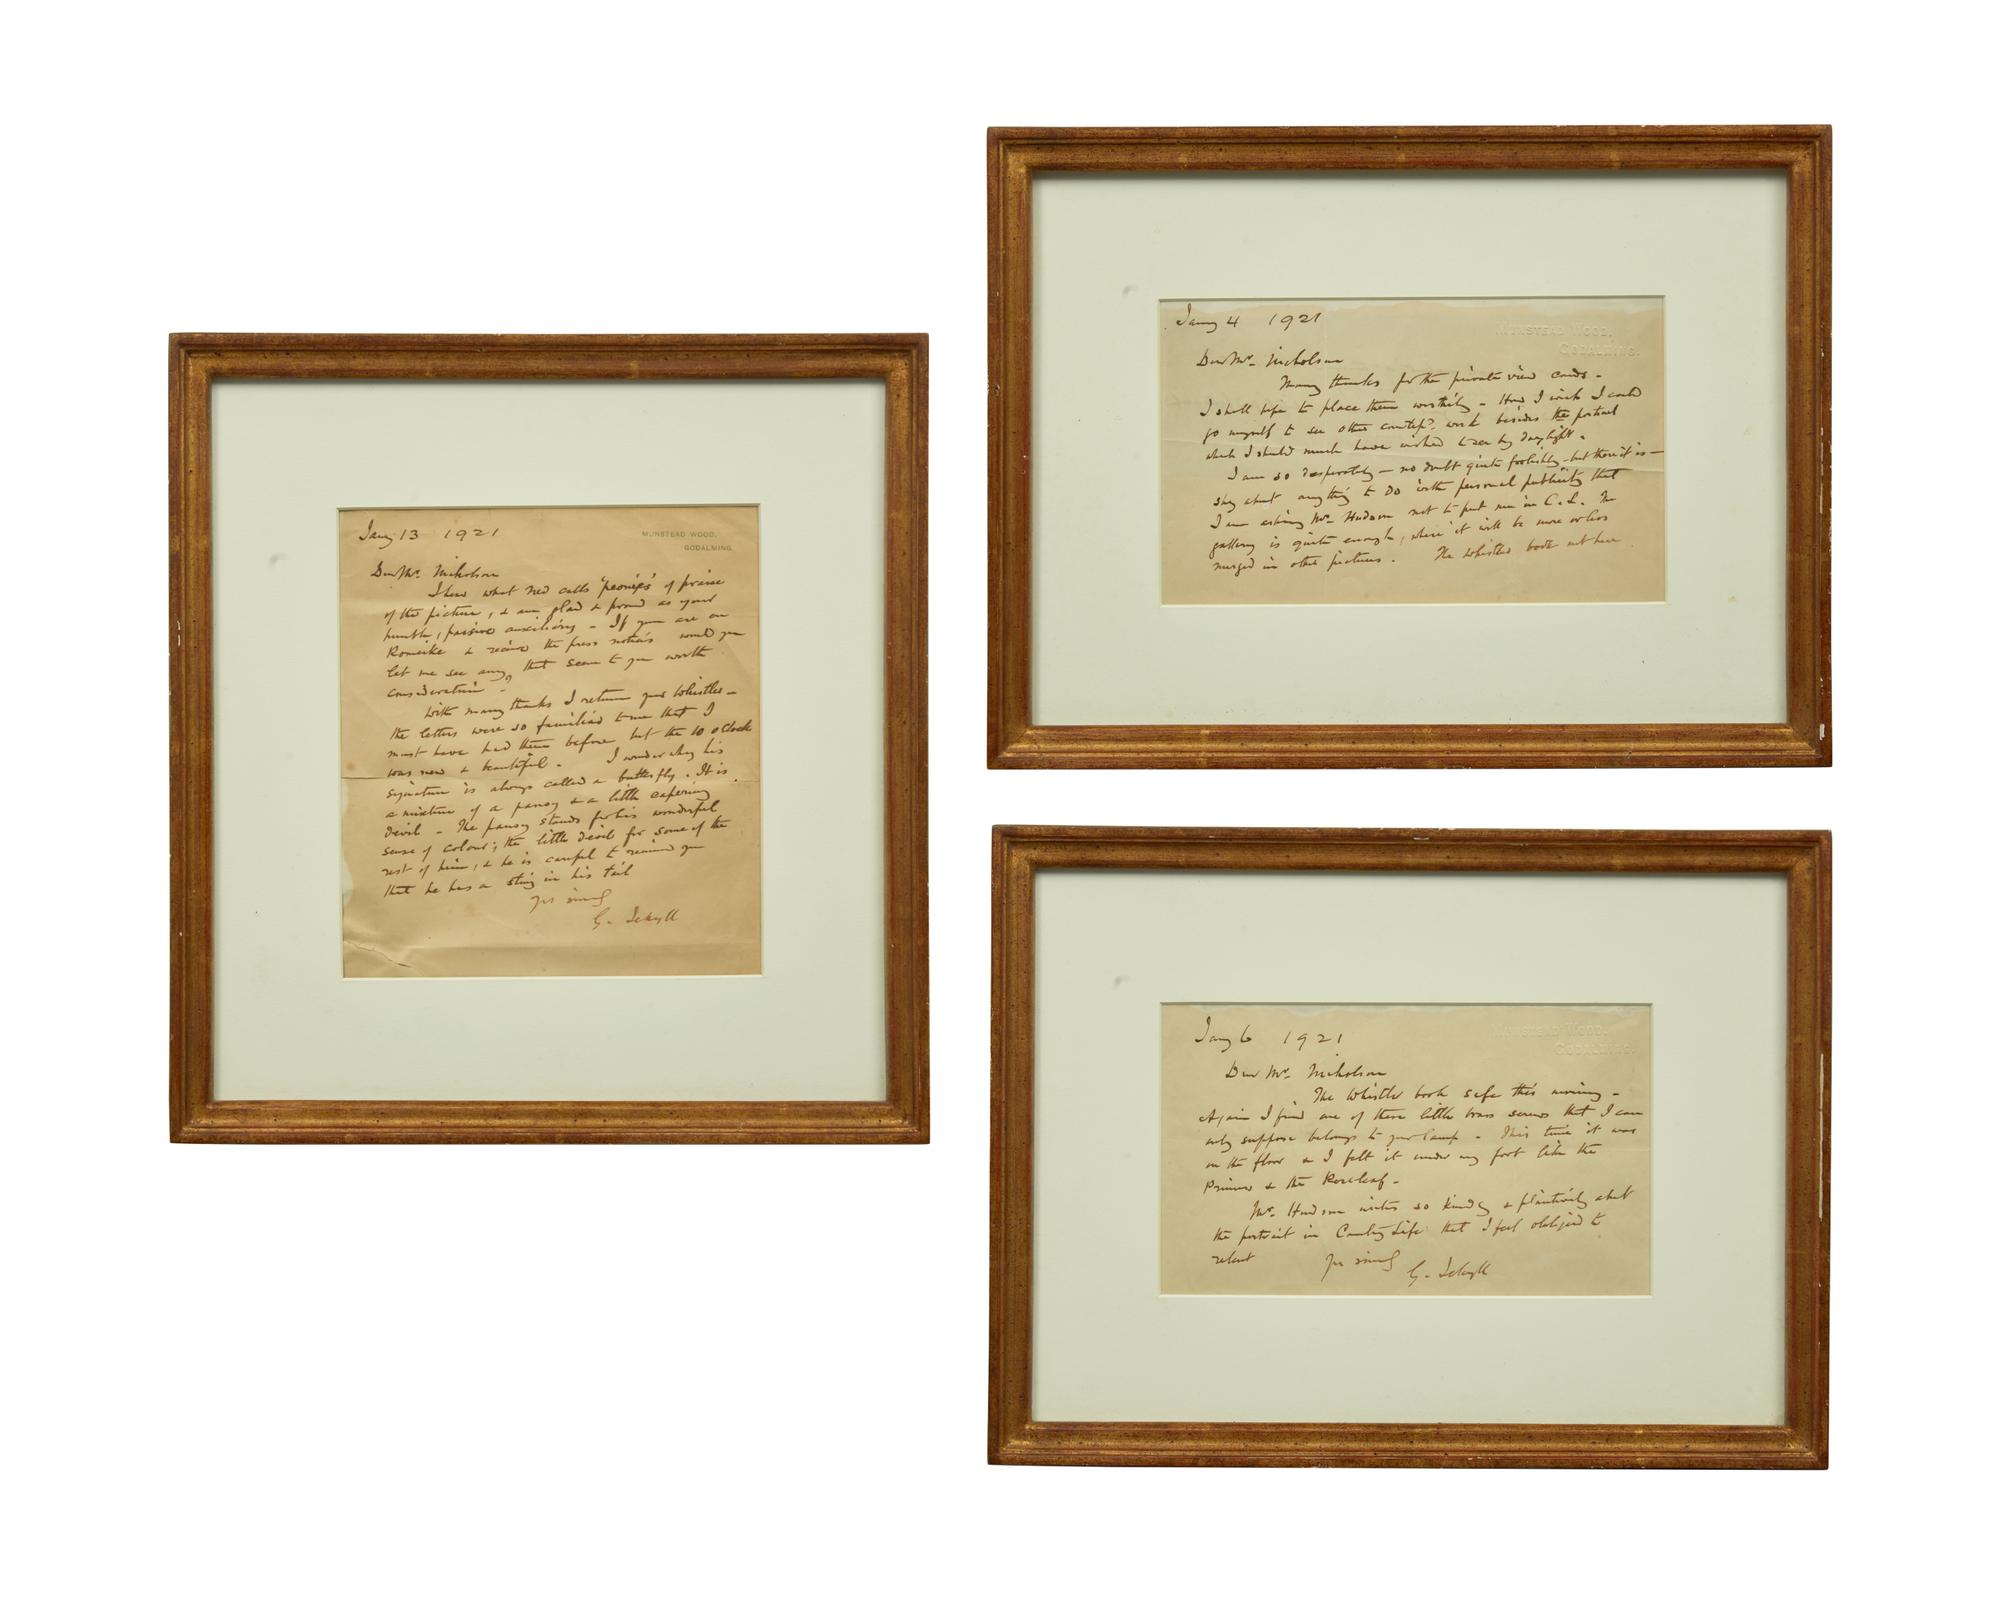 Jany 13 1921
MUNSTEAD WOOD,
GODALMING.
Dear Mr. Nicholson
I hear what Ned calls 'peonies' of praise
of the picture, & am glad & proud as your
humble, passive auxiliary - If you are on
Romeike & receive the press notices would you
let me see any, that seem to you worth
consideration -
With many thanks I return your Whistler -
the letters were so familiar to me that I
must have had them before but the 10 o'Clock
was new & beautiful - I wonder why his
signature is always called a butterfly. It is
a mixture of a pansy & a little capering
devil - The pansy stands for his wonderful
sense of colour; the little devil for some of the
rest of him, & he is careful to remind you
that he has a sting in his tail
Yrs sincly
G. Jekyll
Jany 4 1921
MUNSTEAD WOOD,
GODALMING.
Dear Mr. Nicholson
Many thanks for the private view cards -
I shall hope to place them worthily - How I wish I could
go myself to see other work besides the portrait
which I should much have wished to see by daylight.
I am so desperately - no doubt quite foolishly - but there it is -
shy about anything to do with personal publicity that
I am asking Mr. Hudson not to put me in C. L. The
gallery is quite enough, where it will be more or less
merged in other pictures. The Whistler book not here
Jany 6 1921
MUNSTEAD WOOD,
GODALMING.
Dear Mr. Nicholson
The Whistler book safe this morning -
Again I find one of these little brass screws that I can
only suppose belongs to your lamp - This time it was
on the floor & I felt it under my foot like the
Princess & the Roseleaf -
Mr. Hudson writes so kindly & plaintively about
the portrait in Country Life that I feel obliged to
relent Yrs sincly G. Jekyll